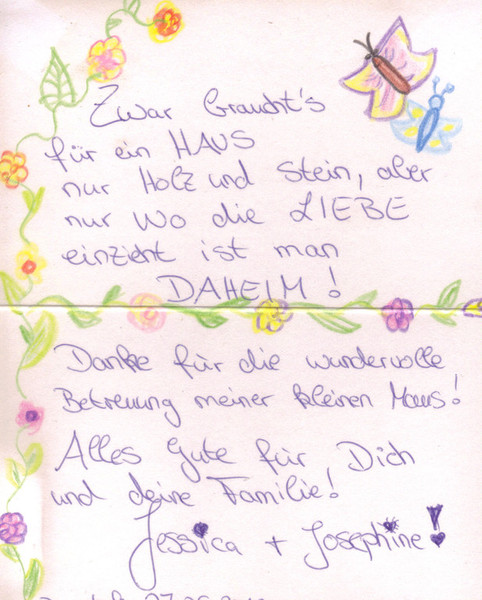 Zwar braucht's
für ein HAUS
nur Holz und Stein, aber
nur wo die LIEBE
einzieht ist man
DAHEIM!
Danke für die wundervolle
Betreuung meiner kleinen Maus!
Alles Gute für Dich
und deine Familie!
Jessica + Josephine!